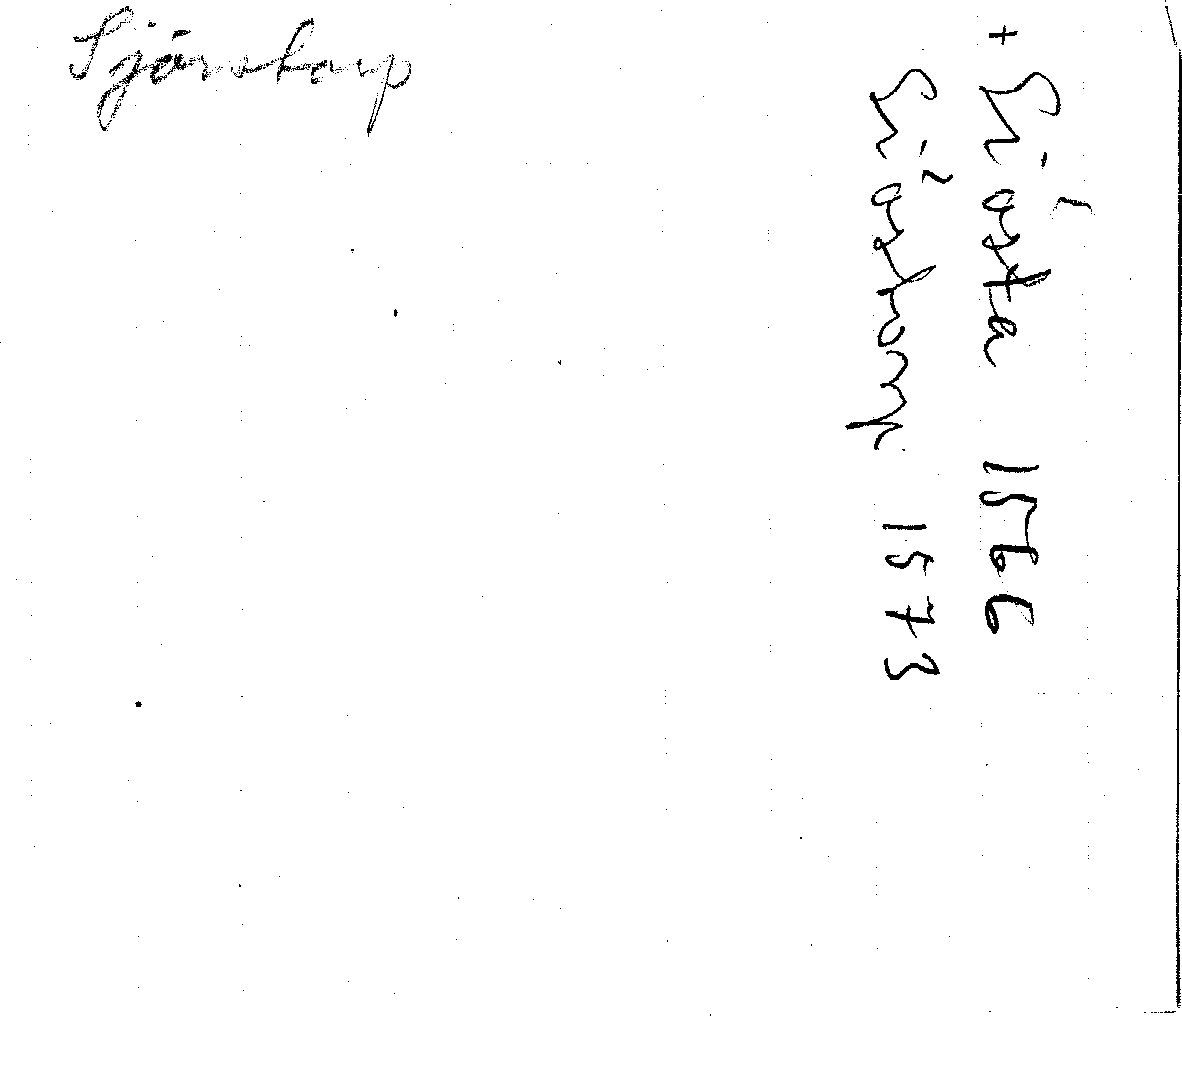 Sjöstorp
+ Siösta 1566
Siöstorp 1573